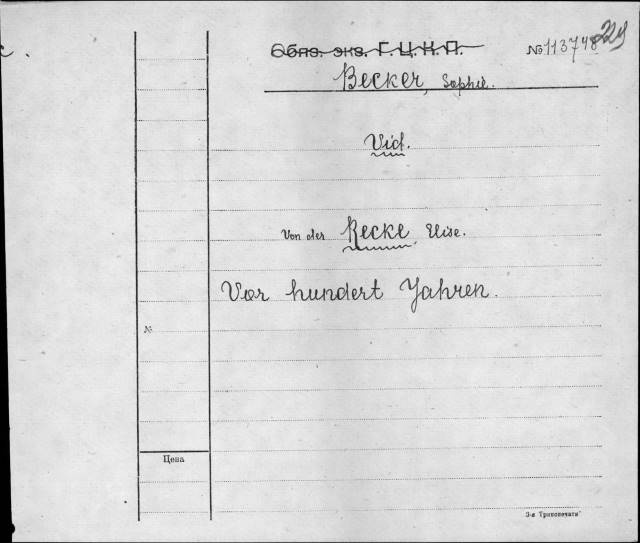 Обяз. экз. Г.Ц.К.П. №113748
229
Becker, Sophie.
Vid.
Von der Recke, Elise.
Vor hundert Jahren.
№
Цена
3-я Трипопечать